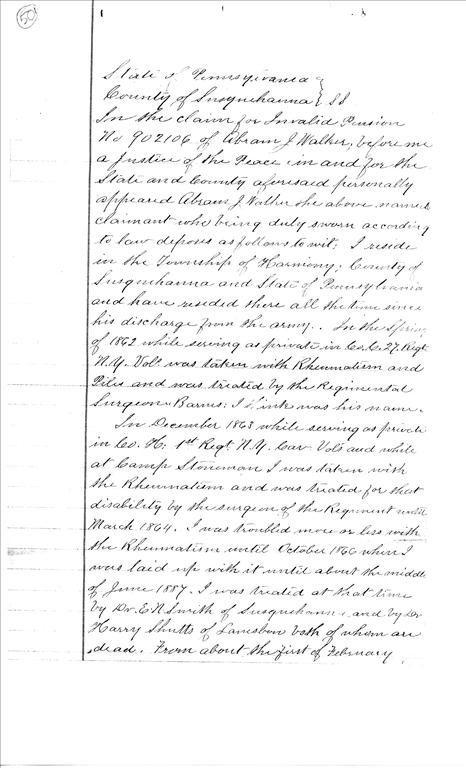 50
State of Pennsylvania }
County of Susquehanna } SS
In the claim for Invalid Pension
No 902106 of Abram J Walker, before me
a Justice of the Peace in and for the
State and County aforesaid personally
appeared Abram J Walker the above named
claimant who being duly sworn according
to law deposes as follows to wit; I reside
in the Township of Harmony; County of
Susquehanna and State of Pennsylvania
and have resided there all the time since
his discharge from the army. In the Spring
of 1862 while serving as private in Co. C. 27 Regt
N.Y. Vols was taken with Rheumatism and
Piles and was treated by the Regimental
Surgeon Barnes; I think was his name.
In December 1863 while serving as private
in Co. H. 1st Regt N.Y. Cav Vols and while
at Camp Stoneman I was taken with
the Rheumatism and was treated for that
disability by the surgeon of the Regiment until
March 1864. I was troubled more or less with
the Rheumatism until October 1866 when I
was laid up with it until about the middle
of June 1887. I was treated at that time
by Dr. E N. Smith of Susquehanna and by Dr
Harry Shutts of Lanesboro both of whom are
dead. From about the first of February